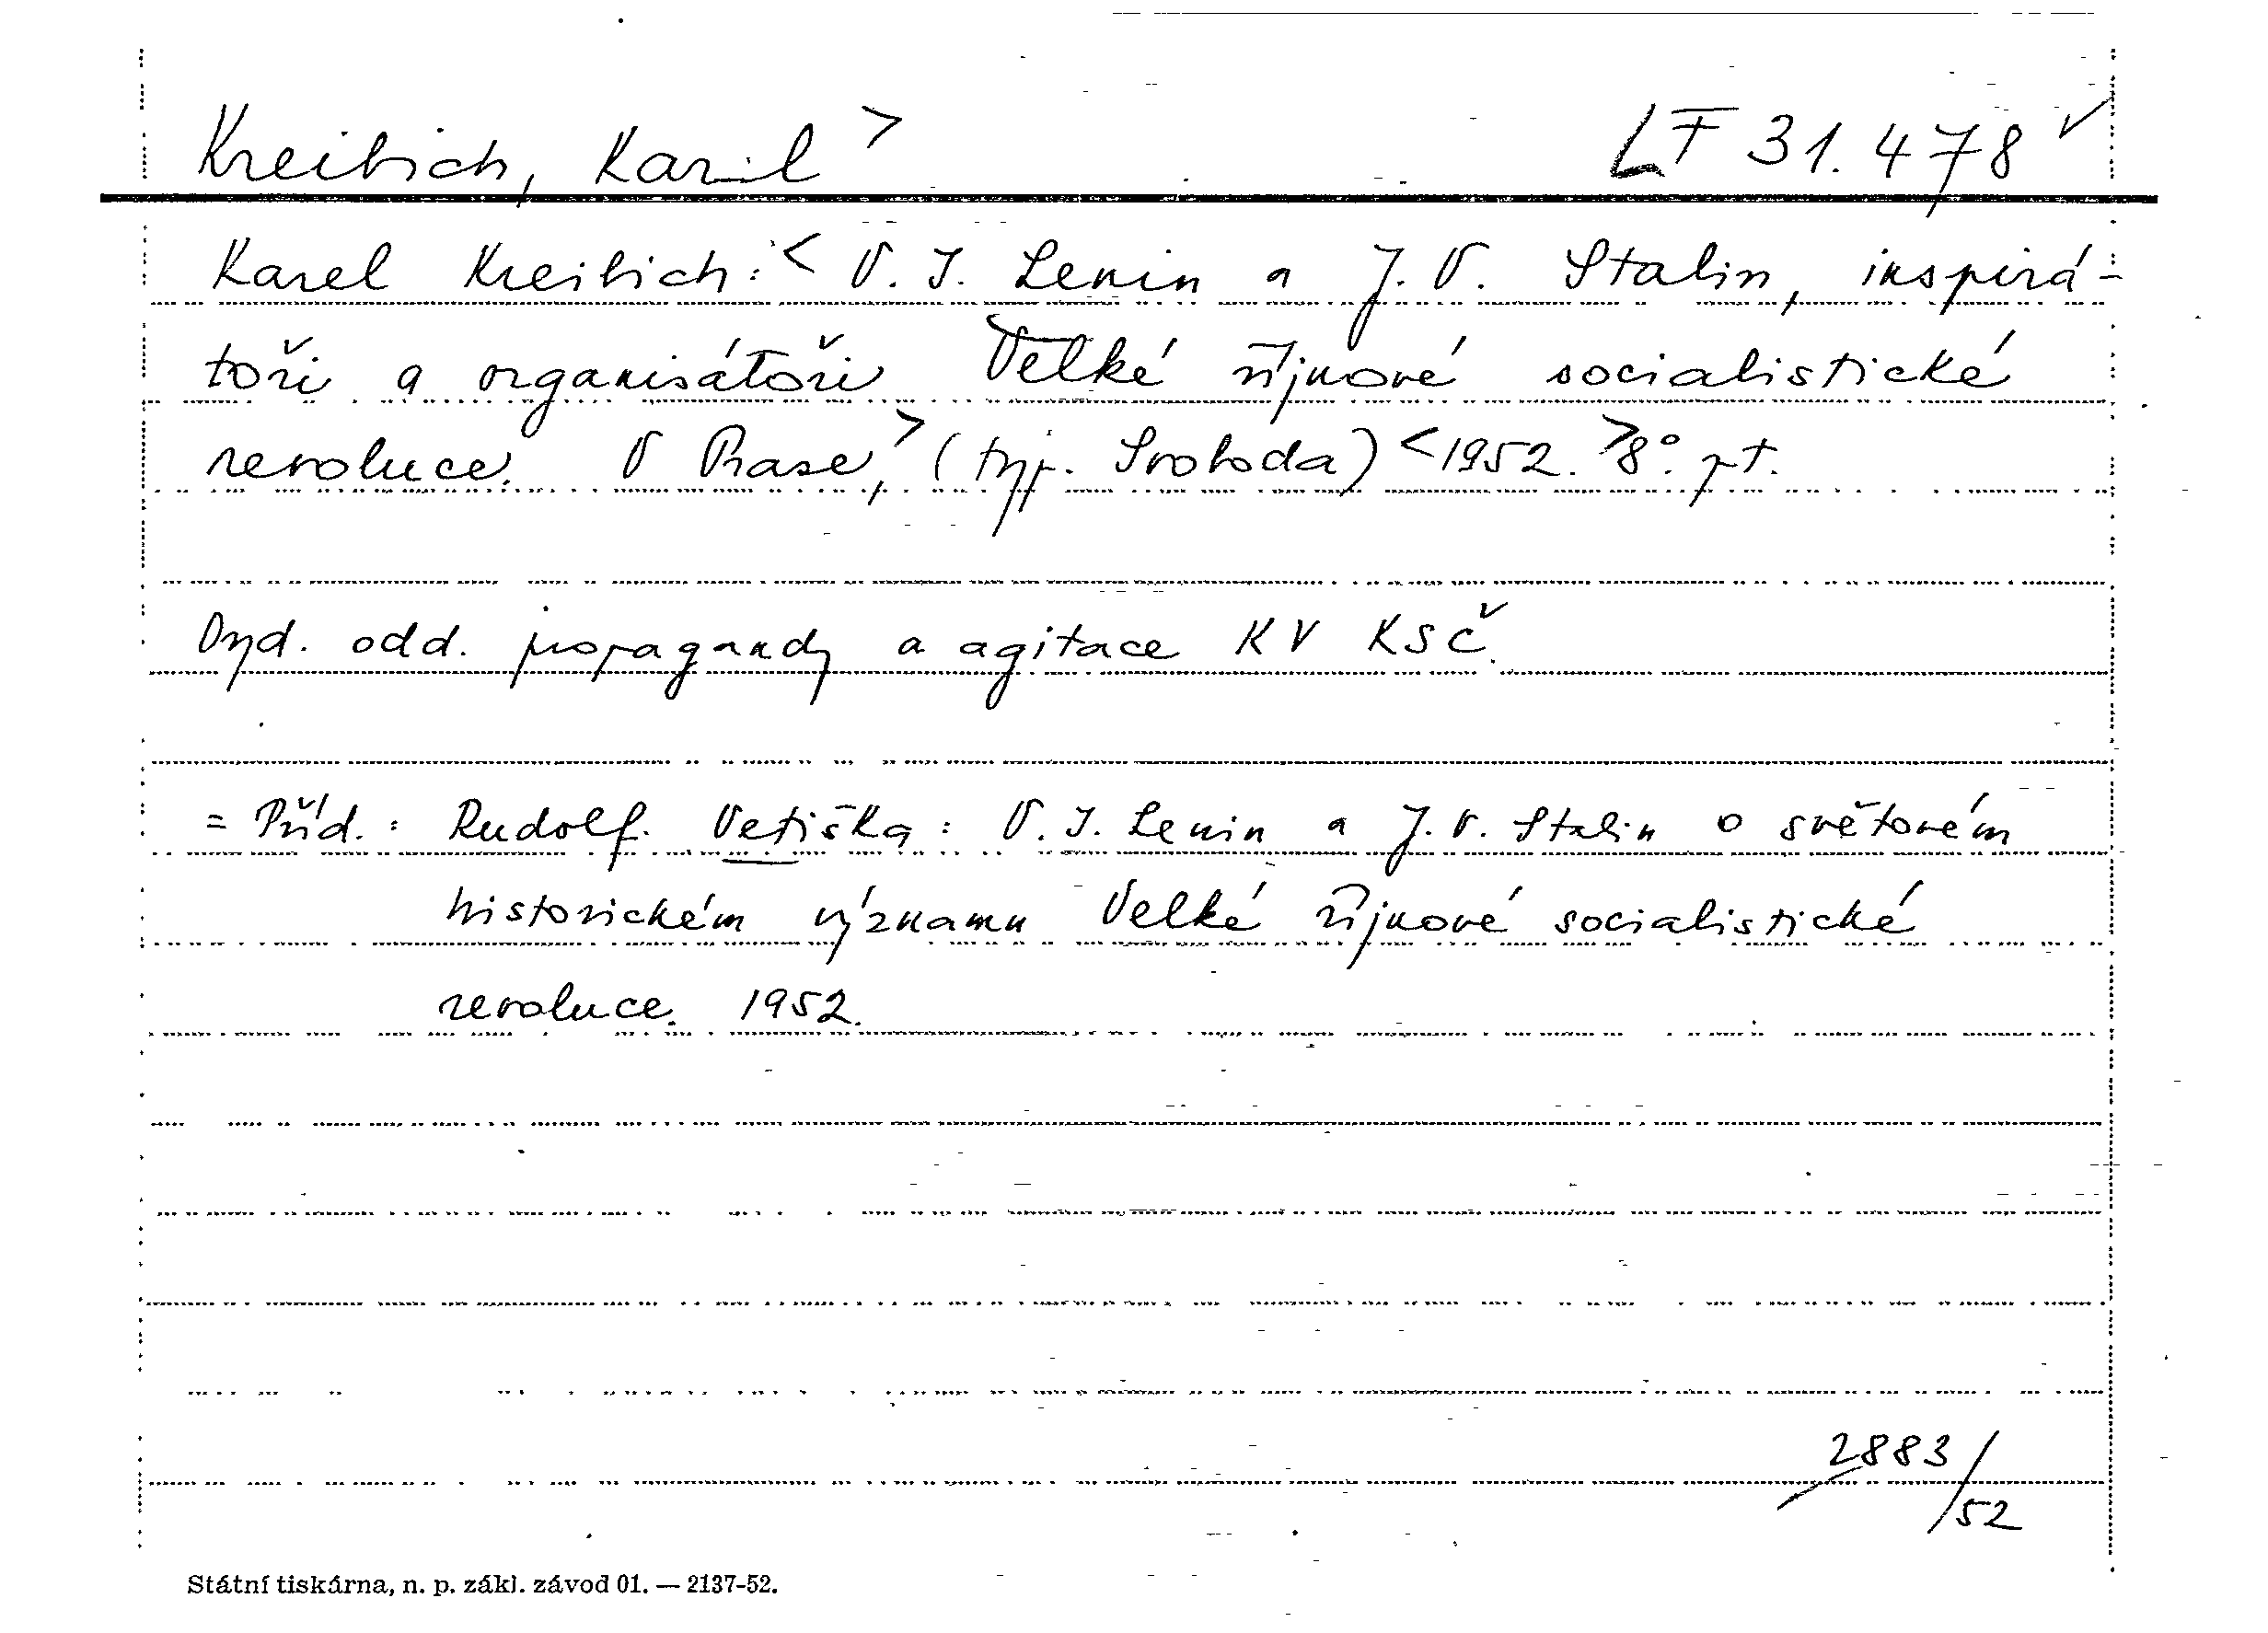 Kreibich, Karel > LF 31.478 ✓
Karel Kreibich: < V. I. Lenin a J. V. Stalin, inspirá-
toři a organisátoři Velké říjnové socialistické
revoluce. V Praze, > (typ. Svoboda) < 1952. > 8°. pt.
Vyd. odd. propagandy a agitace KV KSČ.
= Příd.: Rudolf Vetiška: V. I. Lenin a J. V. Stalin o světovém
historickém významu Velké říjnové socialistické
revoluce. 1952.
2883/52
Státní tiskárna, n. p. zákl. závod 01. — 2137-52.